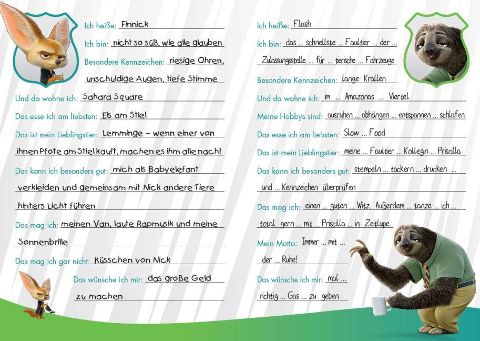 Ich heiße: Finnick
Ich bin: nicht so süß, wie alle glauben
Besondere Kennzeichen: riesige Ohren,
unschuldige Augen, tiefe Stimme
Und da wohne ich: Sahara Square
Das esse ich am liebsten: Eis am Stiel
Das ist mein Lieblingstier: Lemminge – wenn einer von
ihnen Pfote am Stiel kauft, machen es ihm alle nach!
Das kann ich besonders gut: mich als Babyelefant
verkleiden und gemeinsam mit Nick andere Tiere
hinters Licht führen
Das mag ich: meinen Van, laute Rapmusik und meine
Sonnenbrille
Das mag ich gar nicht: Küsschen von Nick
Das wünsche ich mir: das große Geld
zu machen
Ich heiße: Flash
Ich bin: das ... schnellste ... Faultier ... der ...
Zulassungsstelle ... für ... tierische ... Fahrzeuge
Besondere Kennzeichen: lange Krallen
Und da wohne ich: im ... Amazonas ... Viertel
Meine Hobbys sind: ausruhen ... abhängen ... entspannen ... schlafen
Das esse ich am liebsten: Slow ... Food
Das ist mein Lieblingstier: meine ... Faultier ... Kollegin ... Priscilla
Das kann ich besonders gut: stempeln ... tackern ... drucken ...
und ... Kennzeichen überprüfen
Das mag ich: einen ... guten ... Witz. Außerdem ... tanze ... ich ...
total gern ... mit ... Priscilla ... in Zeitlupe
Mein Motto: Immer ... mit ...
der ... Ruhe!
Das wünsche ich mir: mal ...
richtig ... Gas ... zu geben